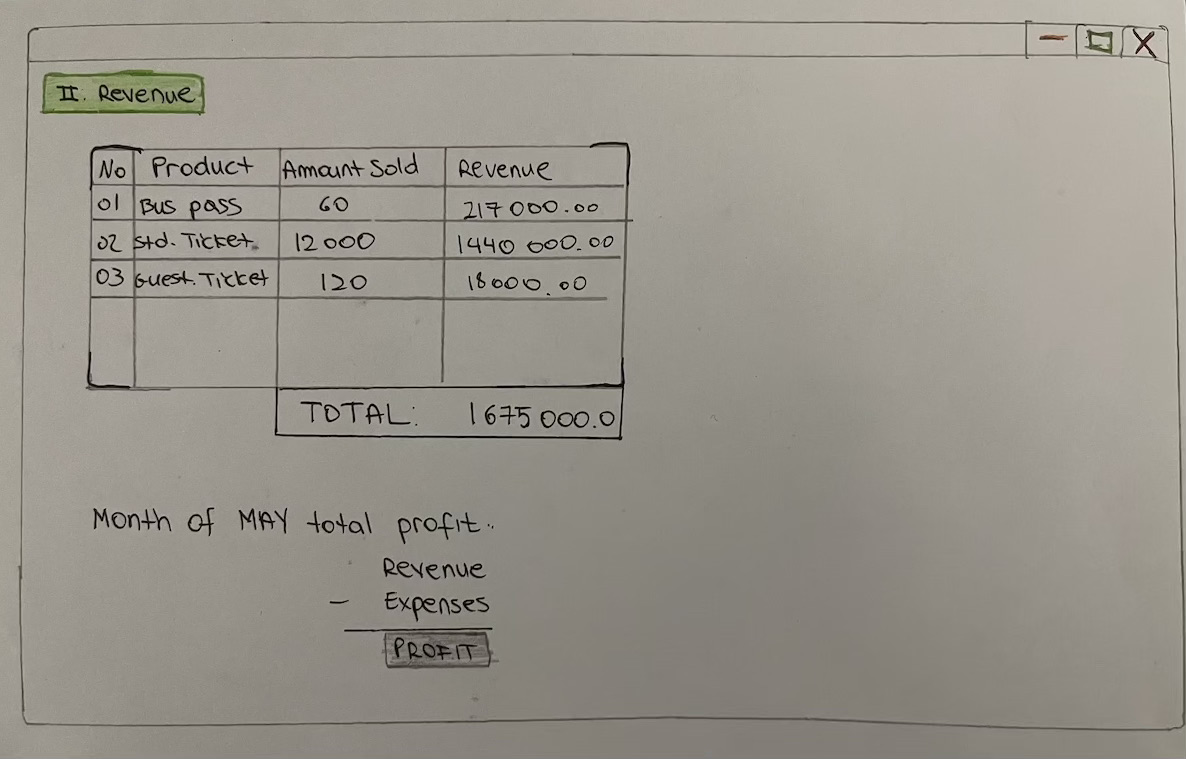 II. Revenue
No Product Amount Sold Revenue
01 Bus pass 60 217 000.00
02 Std. Ticket. 12 000 1440 000.00
03 Guest. Ticket 120 18000.00
TOTAL: 1675 000.0
Month of MAY total profit..
Revenue
- Expenses
PROFIT